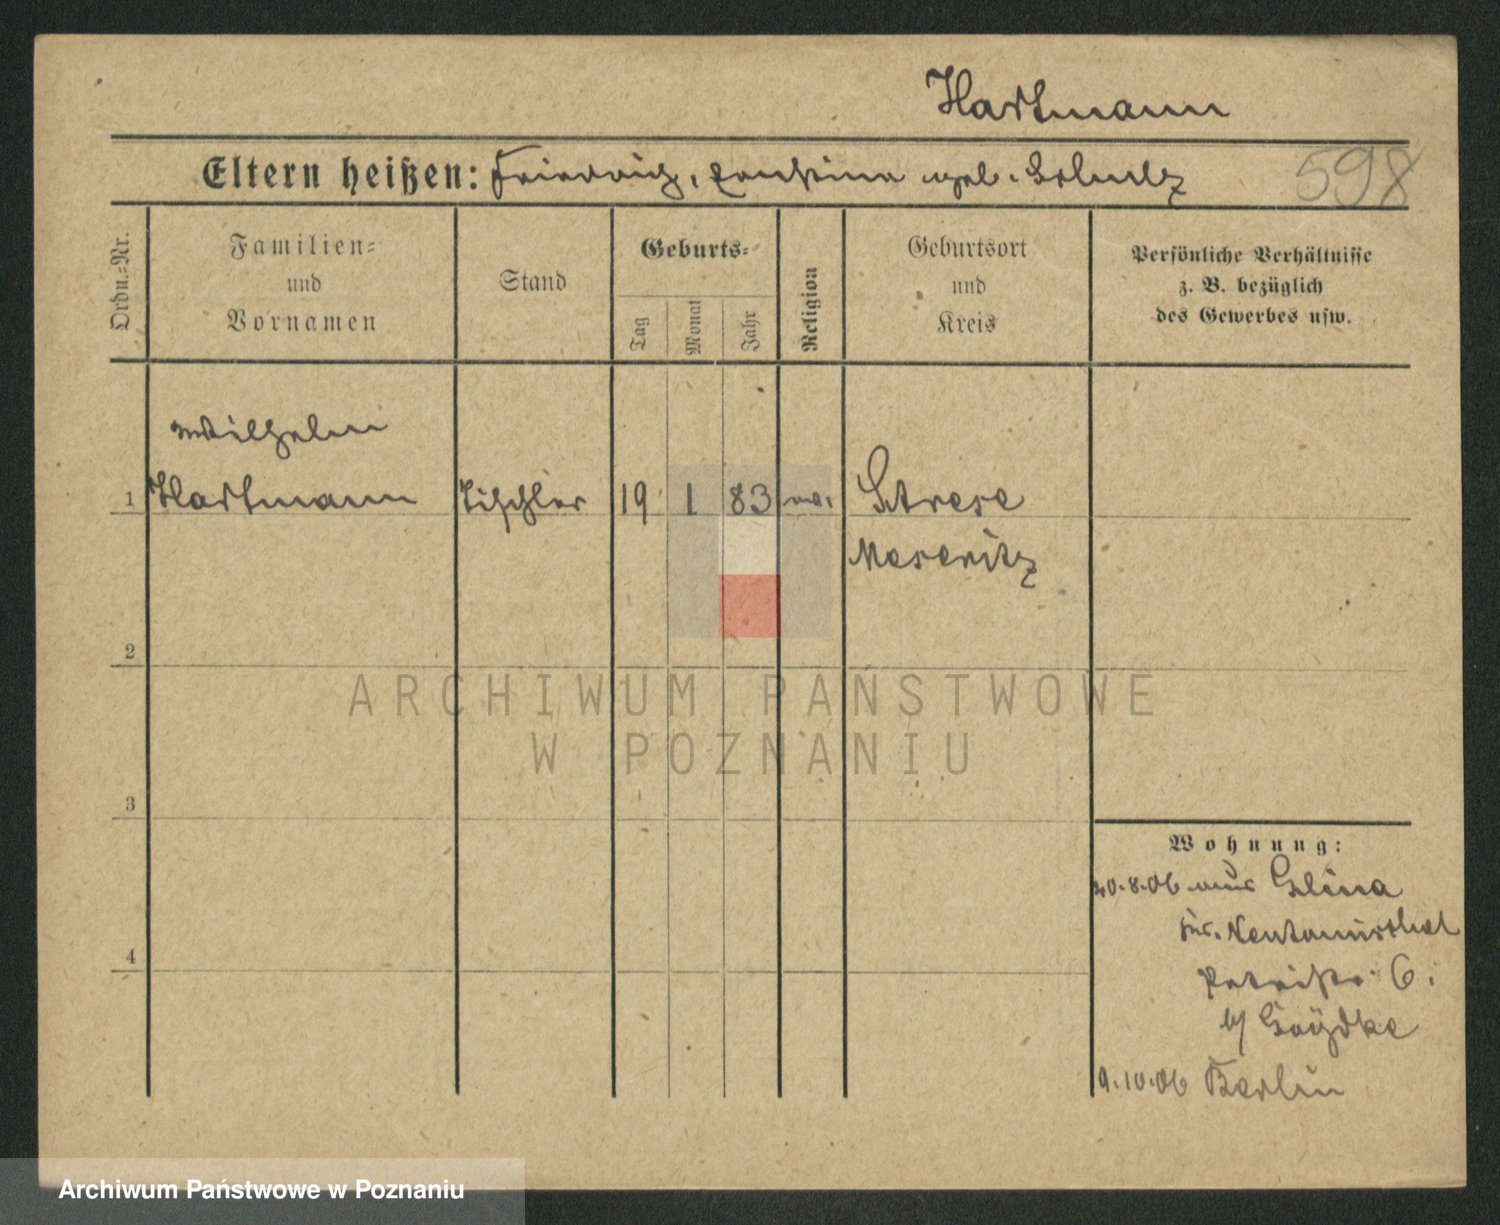 Hartmann
Eltern heißen: Friedrich, Paulina geb. Schulz
598
Ordn.-Nr.
Familien-
und
Vornamen
Stand
Geburts-
Tag
Monat
Jahr
Religion
Geburtsort
und
Kreis
Persönliche Verhältnisse
z. B. bezüglich
des Gewerbes usw.
Wilhelm
1 Hartmann Tischler 19 1 83 ev. Strese
Meseritz
2
3
4
ARCHIWUM PAŃSTWOWE
W POZNANIU
Wohnung:
20.8.06 aus Glina
Kr. Neutomischel
6
b/
9.10.06 Berlin
Archiwum Państwowe w Poznaniu